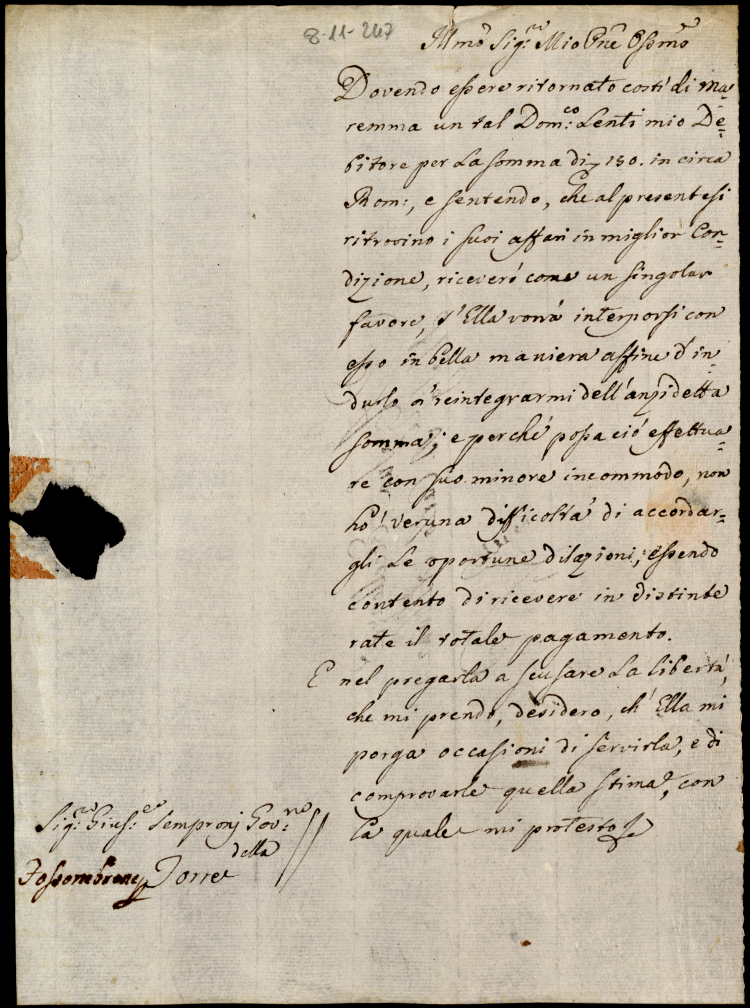 8-11-247
Illmo Sig.re Mio Pne Ossmo
Dovendo essere ritornato costì di ma=
remma un tal Dom.co Lenti mio De=
bitore per la somma di 150. in circa
Rom:, e sentendo, che al presente si
ritrovino i suoi affari in miglior Con=
dizione, riceverò come un singolar
favore, s'Ella vorrà interporsi con
esso in bella maniera affine d'in=
durlo à reintegrarmi dell'anzidetta
somma; e perchè possa ciò effettua=
re con suo minore incommodo, non
hò veruna difficoltà di accordar=
gli le oportune dilazioni; essendo
contento di ricevere in distinte
rate il totale pagamento.
E nel pregarla a scusare la libertà,
che mi prendo, desidero, ch'Ella mi
porga occasioni di servirla, e di
comprovarle quella stima, con
la quale mi protesto
Sig.re Gius.e Sempronj Gov.re
della
Fossombrone Torre